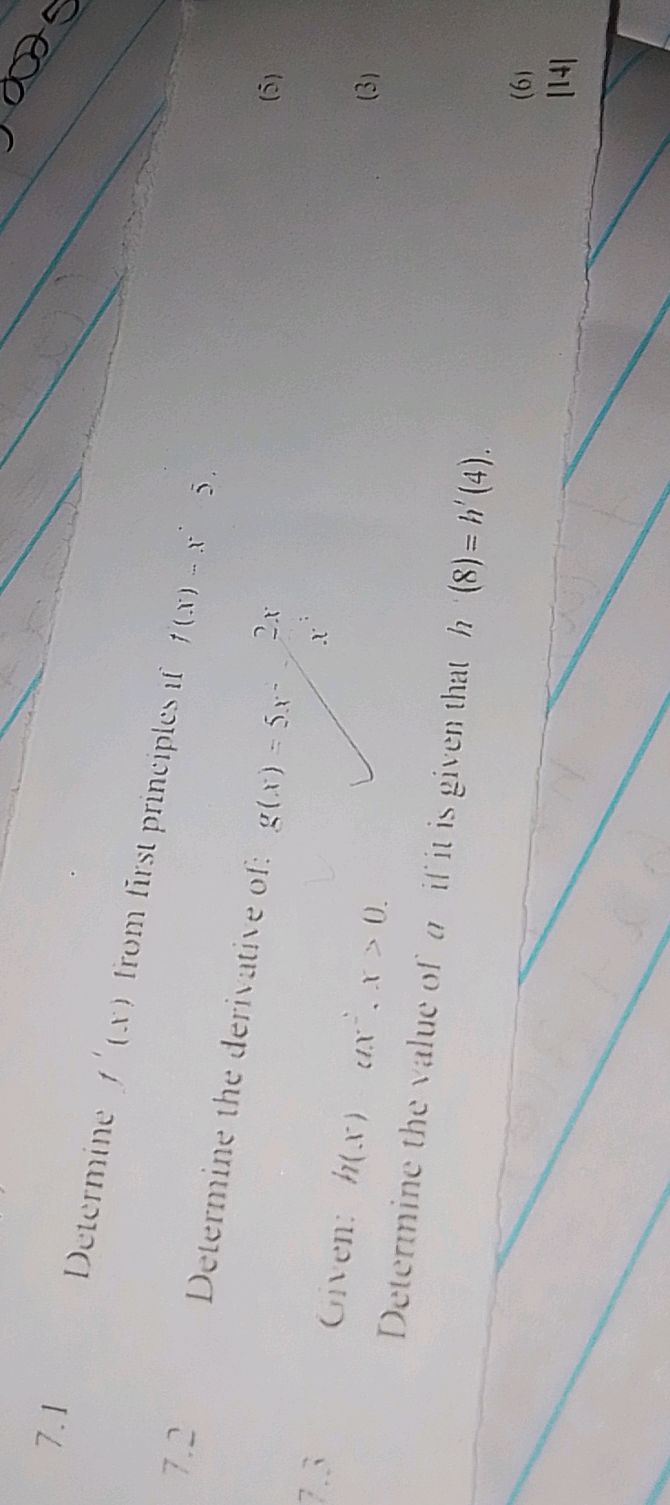 7.1 Determine f'(x) from first principles if f(x) = x 5. (5)
7.2 Determine the derivative of: g(x) = 5x 2x (3)
x
7.3 Given: h(x) ax , x > 0.
Determine the value of a if it is given that h (8) = h'(4). (6)
[14]